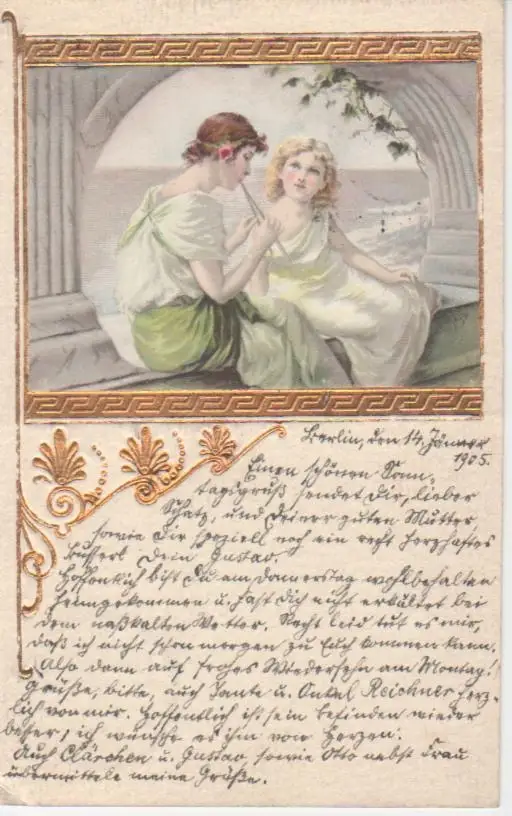 Berlin, den 14. Jänner
1905.
Einen schönen Sonn-
tagsgruß sendet Dir, lieber
Schatz, und Deiner guten Mutter,
sowie Dir speziell noch ein recht herzhaftes
Busserl Dein Gustav.
Hoffentlich bist Du am Donnerstag wohlbehalten
heimgekommen u. hast Dich nicht erkältet bei
dem naßkalten Wetter. Recht leid tut es mir,
daß ich nicht schon morgen zu Euch kommen kann.
Also dann auf frohes Wiedersehn am Montag!
Grüße, bitte, auch Tante u. Onkel Reichner herz-
lich von mir. Hoffentlich ist sein Befinden wieder
besser, ich wünsche es ihm von Herzen.
Auch Clärchen u. Gustav, sowie Otto nebst Frau
übermittele meine Grüße.